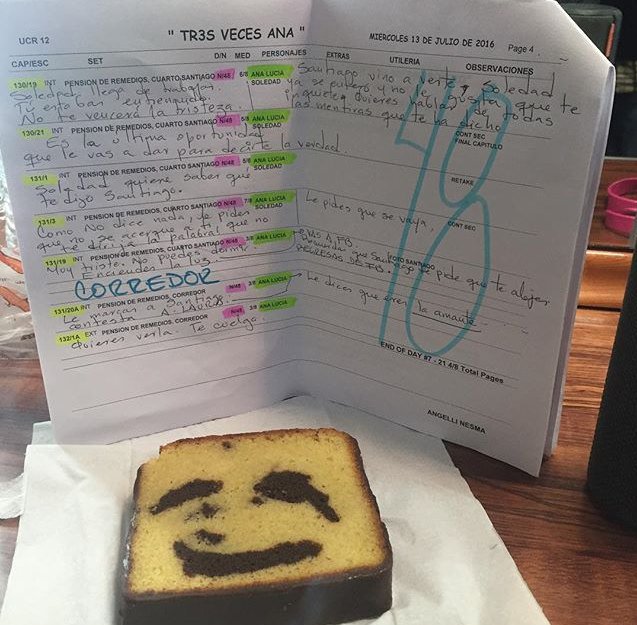 UCR 12 " TR3S VECES ANA " MIERCOLES 13 DE JULIO DE 2016 Page 4
CAP/ESC SET D/N MED PERSONAJES EXTRAS UTILERIA OBSERVACIONES
130/19 INT PENSION DE REMEDIOS, CUARTO SANTIAGO N/48 6/8 ANA LUCIA Santiago vino a verte, Soledad
Soledad llega de hablar SOLEDAD ya se enteró y no le gusta que te
No te vencerá la tristeza. las mentiras que te ha dicho
130/21 INT PENSION DE REMEDIOS, CUARTO SANTIAGO N/48 5/8 ANA LUCIA CONT SEC
Es la última oportunidad SOLEDAD FINAL CAPITULO
que le vas a dar para decirte la verdad.
131/1 INT PENSION DE REMEDIOS, CUARTO SANTIAGO N/48 5/8 ANA LUCIA RETAKE
Soledad quiere saber que SOLEDAD
te dijo Santiago.
131/3 INT PENSION DE REMEDIOS, CUARTO SANTIAGO N/48 7/8 ANA LUCIA Le pides que se vaya, CONT SEC
Como No dice nada, le pides SOLEDAD
que no se acerque a ti que no
te dirija la palabra!
131/19 INT PENSION DE REMEDIOS, CUARTO SANTIAGO N/48 3/8 ANA LUCIA FOTO SANTIAGO
Muy triste. No puedes dormir pide que te alejes
Enciendes la luz. REGRESAS DE FB.
CORREDOR
131/20A INT PENSION DE REMEDIOS, CORREDOR N/48 3/8 ANA LUCIA Le dices que eres la amante...
Le marcas a Santiago
contesta A. LAURA.
132/1A EXT PENSION DE REMEDIOS, CORREDOR N/48 3/8 ANA LUCIA
Quieres verla. Te cuelga.
48
END OF DAY #7 - 21 4/8 Total Pages
ANGELLI NESMA